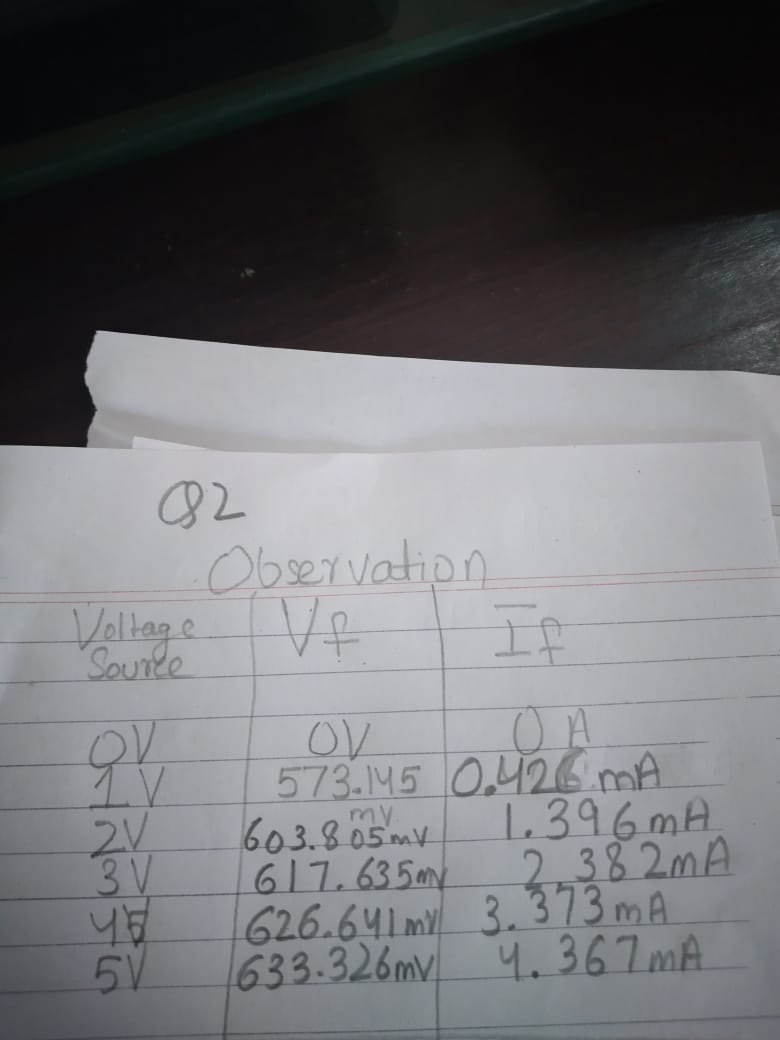 Q2
Observation
Voltage Source Vf If
0V 0V 0 A
1V 573.145 mV 0.426 mA
2V 603.805mV 1.396mA
3V 617.635mV 2.382mA
4V 626.641mV 3.373mA
5V 633.326mV 4.367mA